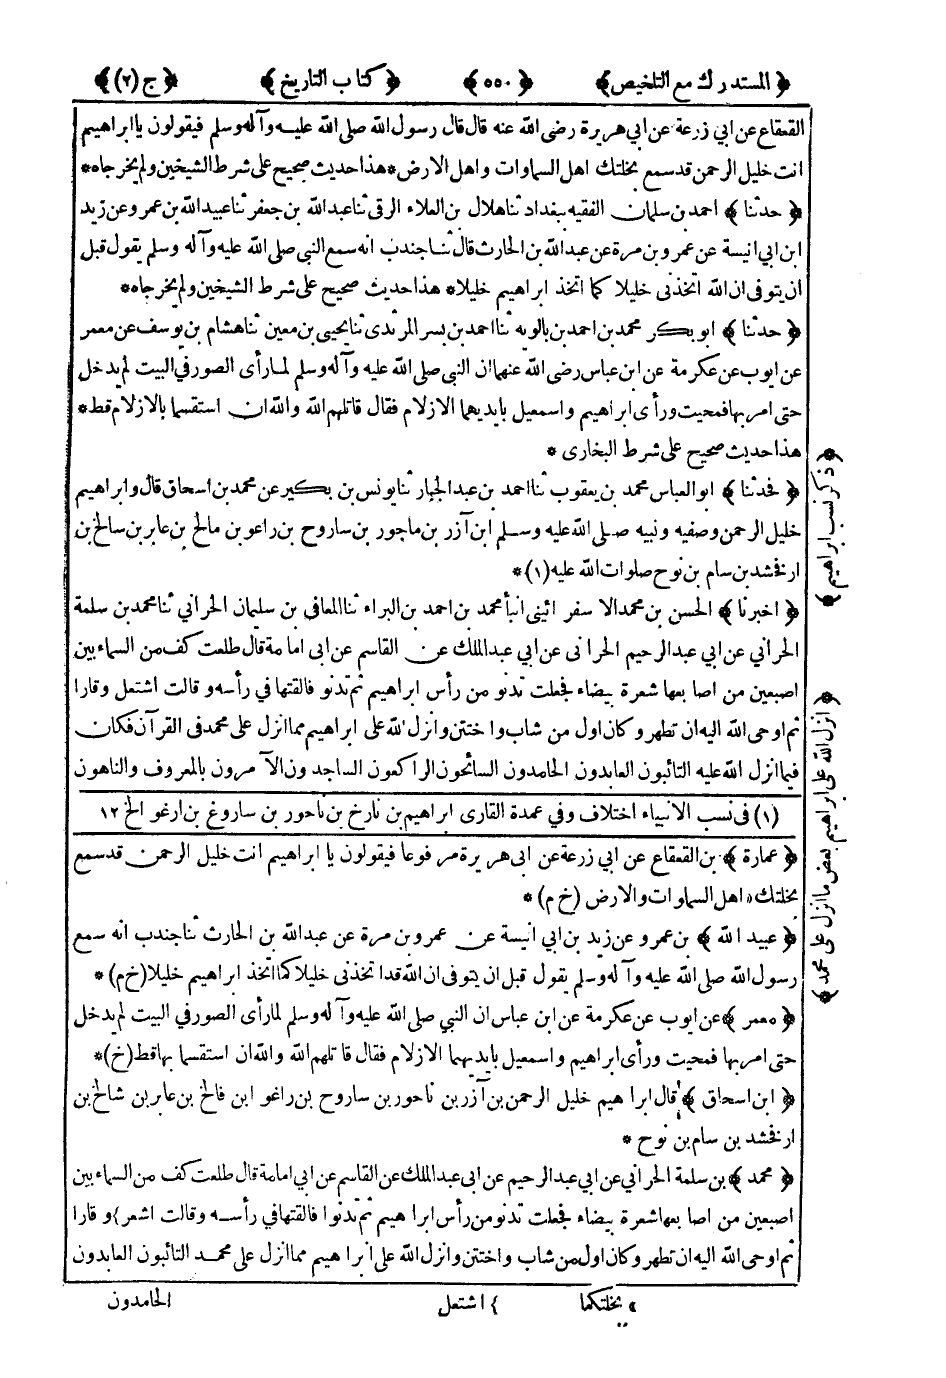 ﴿ المستدرك مع التلخيص ﴾ ﴿ ٥٥٠ ﴾ ﴿ كتاب التاريخ ﴾ ﴿ ج (٢) ﴾
القعقاع عن ابي زرعة عن ابي هريرة رضى الله عنه قال قال رسول الله صلى الله عليه وآله وسلم فيقولون يا ابراهيم
انت خليل الرحمن قد سمع بخلتك اهل السماوات واهل الارض * هذا حديث صحيح على شرط الشيخين ولم يخرجاه *
﴿ حدثنا ﴾ احمد بن سلمان الفقيه ببغداد ثنا هلال بن العلاء الرقى ثنا عبد الله بن جعفر ثنا عبيد الله بن عمرو عن زيد
ابن ابي انيسة عن عمرو بن مرة عن عبد الله بن الحارث قال ثنا جندب انه سمع النبي صلى الله عليه وآله وسلم يقول قبل
ان يتوفى ان الله اتخذنى خليلا كما اتخذ ابراهيم خليلا * هذا حديث صحيح على شرط الشيخين ولم يخرجاه *
﴿ حدثنا ﴾ ابو بكر محمد بن احمد بن بالويه ثنا احمد بن بسر المرثدى ثنا يحيى بن معين ثنا هشام بن يوسف عن معمر
عن ايوب عن عكرمة عن ابن عباس رضى الله عنهما ان النبي صلى الله عليه وآله وسلم لما رأى الصور في البيت لم يدخل
حتى امر بها فمحيت ورأى ابراهيم واسمعيل بايديهما الازلام فقال قاتلهم الله والله ان استقسما بالازلام قط *
هذا حديث صحيح على شرط البخارى *
﴿ فحدثنا ﴾ ابو العباس محمد بن يعقوب ثنا احمد بن عبد الجبار ثنا يونس بن بكير عن محمد بن اسحاق قال وابراهيم
خليل الرحمن وصفيه ونبيه صلى الله عليه وسلم ابن آزر بن ماجور بن ساروح بن راعو بن مالح بن عابر بن سالخ بن
ارفخشد بن سام بن نوح صلوات الله عليه (١) *
﴿ اخبرنا ﴾ الحسن بن محمد الاسفرائينى انبأ محمد بن احمد بن البراء ثنا المعافى بن سليمان الحراني ثنا محمد بن سلمة
الحراني عن ابي عبد الرحيم الحرانى عن ابي عبد الملك عن القاسم عن ابى امامة قال طلعت كف من السماء بين
اصبعين من اصابعها شعرة بيضاء فجعلت تدنو من رأس ابراهيم ثم تدنو فالقتها في رأسه وقالت اشتعل وقارا
ثم اوحى الله اليه ان تطهر وكان اول من شاب واختتن وانزل الله على ابراهيم مما انزل على محمد فى القرآن فكان
فيما انزل الله عليه التائبون العابدون الحامدون السائحون الراكعون الساجدون الآمرون بالمعروف والناهون
﴿ ذكر نسب ابراهيم ﴾
﴿ انزل الله على ابراهيم بعض ما انزل على محمد ﴾
(١) فى نسب الانبياء اختلاف وفي عمدة القارى ابراهيم بن تارخ بن ناحور بن ساروغ بن ارغو الخ ١٢
﴿ عمارة ﴾ بن القعقاع عن ابي زرعة عن ابى هريرة مرفوعا فيقولون يا ابراهيم انت خليل الرحمن قد سمع
بخلتك « اهل السماوات والارض (خ م) *
﴿ عبيد الله ﴾ بن عمرو عن زيد بن ابي انيسة عن عمرو بن مرة عن عبد الله بن الحارث ثنا جندب انه سمع
رسول الله صلى الله عليه وآله وسلم يقول قبل ان يتوفى ان الله قد اتخذنى خليلا كما اتخذ ابراهيم خليلا (خ م) *
﴿ معمر ﴾ عن ايوب عن عكرمة عن ابن عباس ان النبي صلى الله عليه وآله وسلم لما رأى الصور في البيت لم يدخل
حتى امر بها فمحيت ورأى ابراهيم واسمعيل بايديهما الازلام فقال قاتلهم الله والله ان استقسما بها قط (خ) *
﴿ ابن اسحاق ﴾ قال ابراهيم خليل الرحمن بن آزر بن ناحور بن ساروح بن راغو ابن فالخ بن عابر بن شالخ بن
ارفخشد بن سام بن نوح *
﴿ محمد ﴾ بن سلمة الحراني عن ابي عبد الرحيم عن ابى عبد الملك عن القاسم عن ابي امامة قال طلعت كف من السماء بين
اصبعين من اصابعها شعرة بيضاء فجعلت تدنو من رأس ابراهيم ثم تدنوا فالقتها في رأسه وقالت اشعر } وقارا
ثم اوحى الله اليه ان تطهر وكان اول من شاب واختتن وانزل الله على ابراهيم مما انزل على محمد التائبون العابدون
« بخلتكما } اشتعل الحامدون